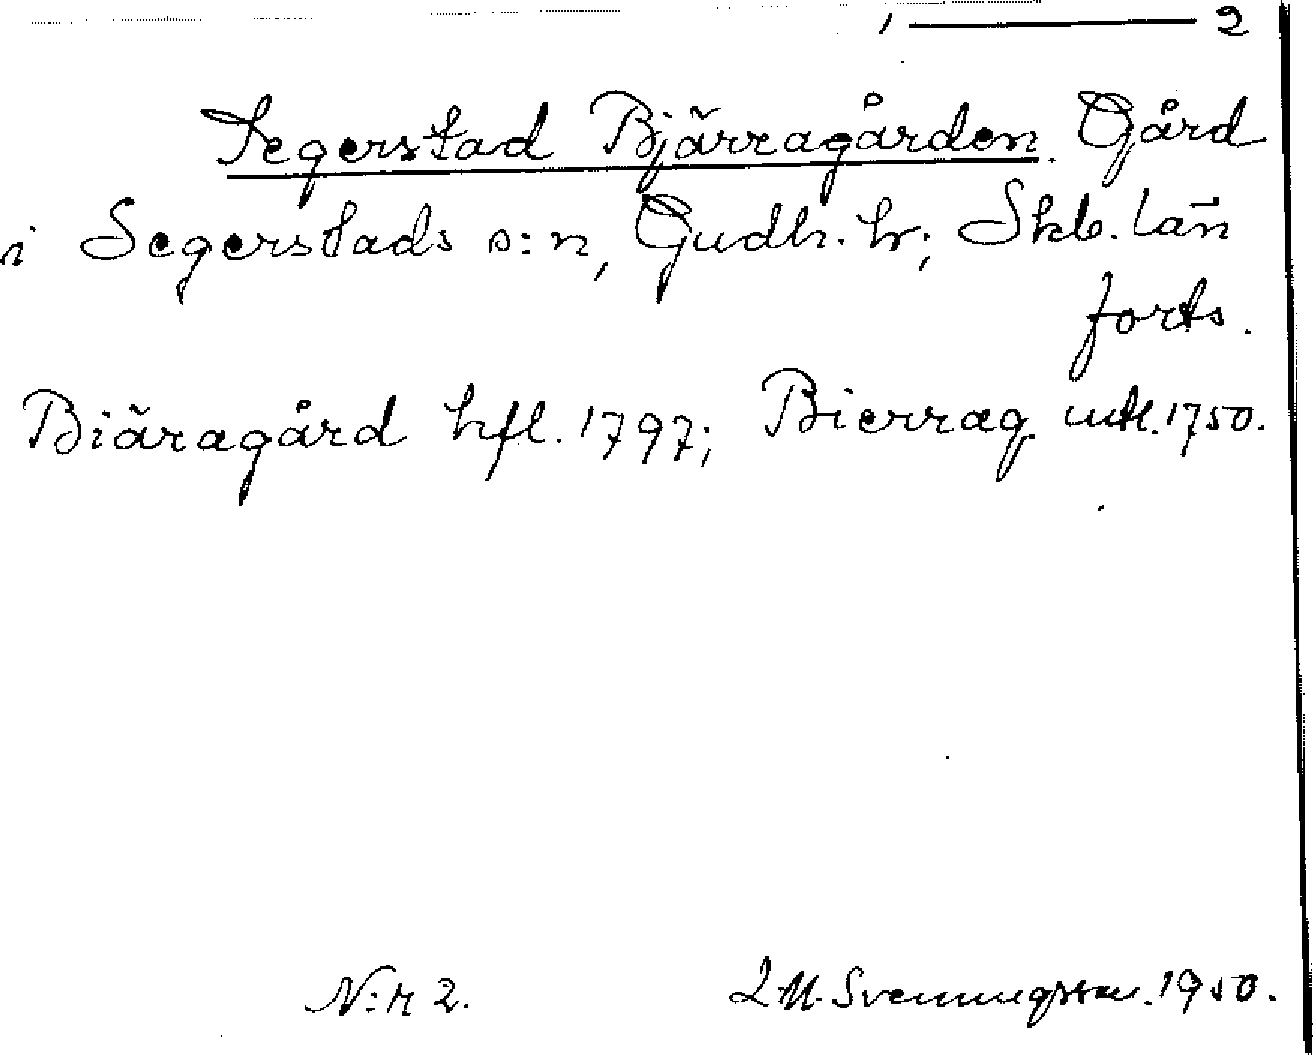 1 — 2
Segerstad Bjärragården. Gård
i Segerstads s:n, Gudh. hr; Skb. län
forts.
Biäragård hfl. 1797; Bierrag. mtl. 1750.
N:r 2. L M. Svenungsson. 1950.